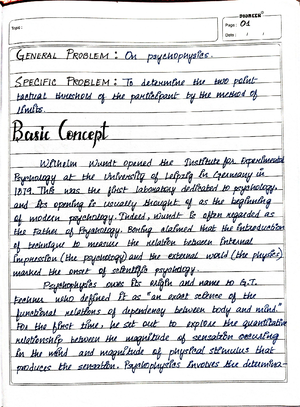 PIONEER
Topic:
Page: 01
Date: / /
GENERAL PROBLEM: On psychophysics.
SPECIFIC PROBLEM: To determine the two point
tactual threshold of the participant by the method of
limits.
Basic Concept
Wilhelm Wundt opened the Institute for Experimental
Psychology at the University of Leipzig in Germany in
1879. This was the first laboratory dedicated to psychology,
and its opening is usually thought of as the beginning
of modern psychology. Indeed, Wundt is often regarded as
the Father of Psychology. Boring claimed that the introduction
of technique to measure the relation between internal
impression (the psychology) and the external world (the physics)
marked the onset of scientific psychology.
Psychophysics owes its origin and name to G.T.
Fechner who defined it as "an exact science of the
functional relations of dependency between body and mind."
For the first time, he set out to explore the quantitative
relationship between the magnitude of sensation occurring
in the mind and magnitude of physical stimulus that
produces the sensation. Psychophysics involves the determina-